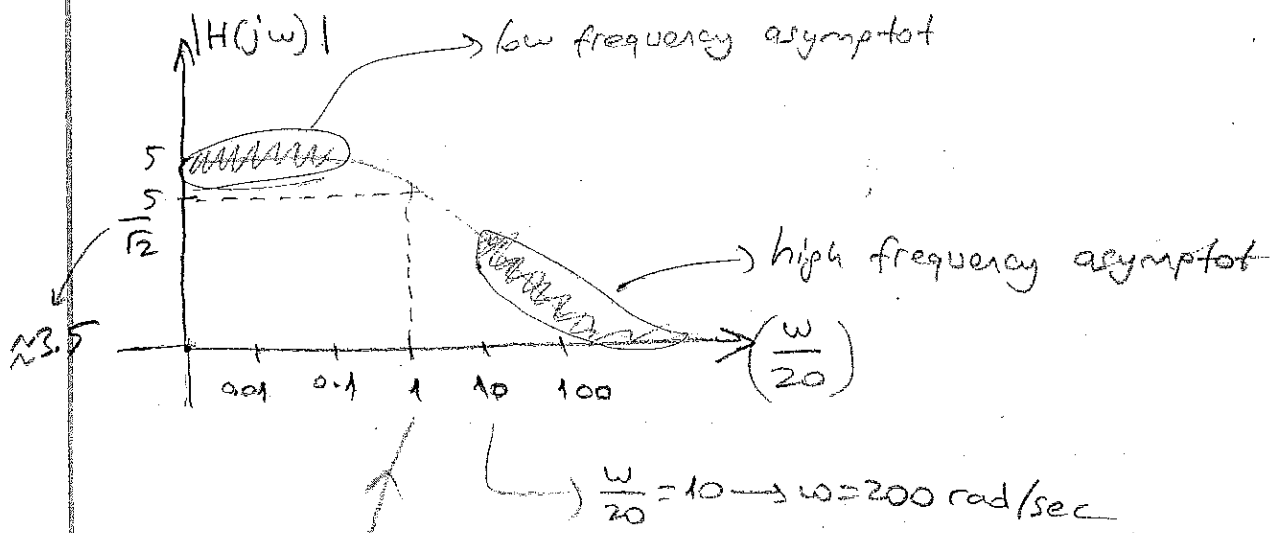 |H(jω)|
low frequency asymptot
5
5/√2
≈3.5
high frequency asymptot
(ω/20)
0.01 0.1 1 10 100
ω/20 = 10 → ω = 200 rad/sec